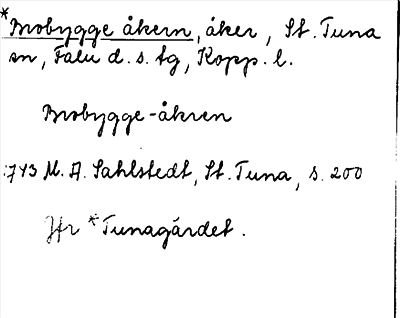 *Brobygge åkern, åker, St. Tuna
sn, Falu d.s. tg, Kopp. l.
Brobygge-åkren
1743 M. A. Sahlstedt, St. Tuna, s. 200
Jfr *Tunagärdet.